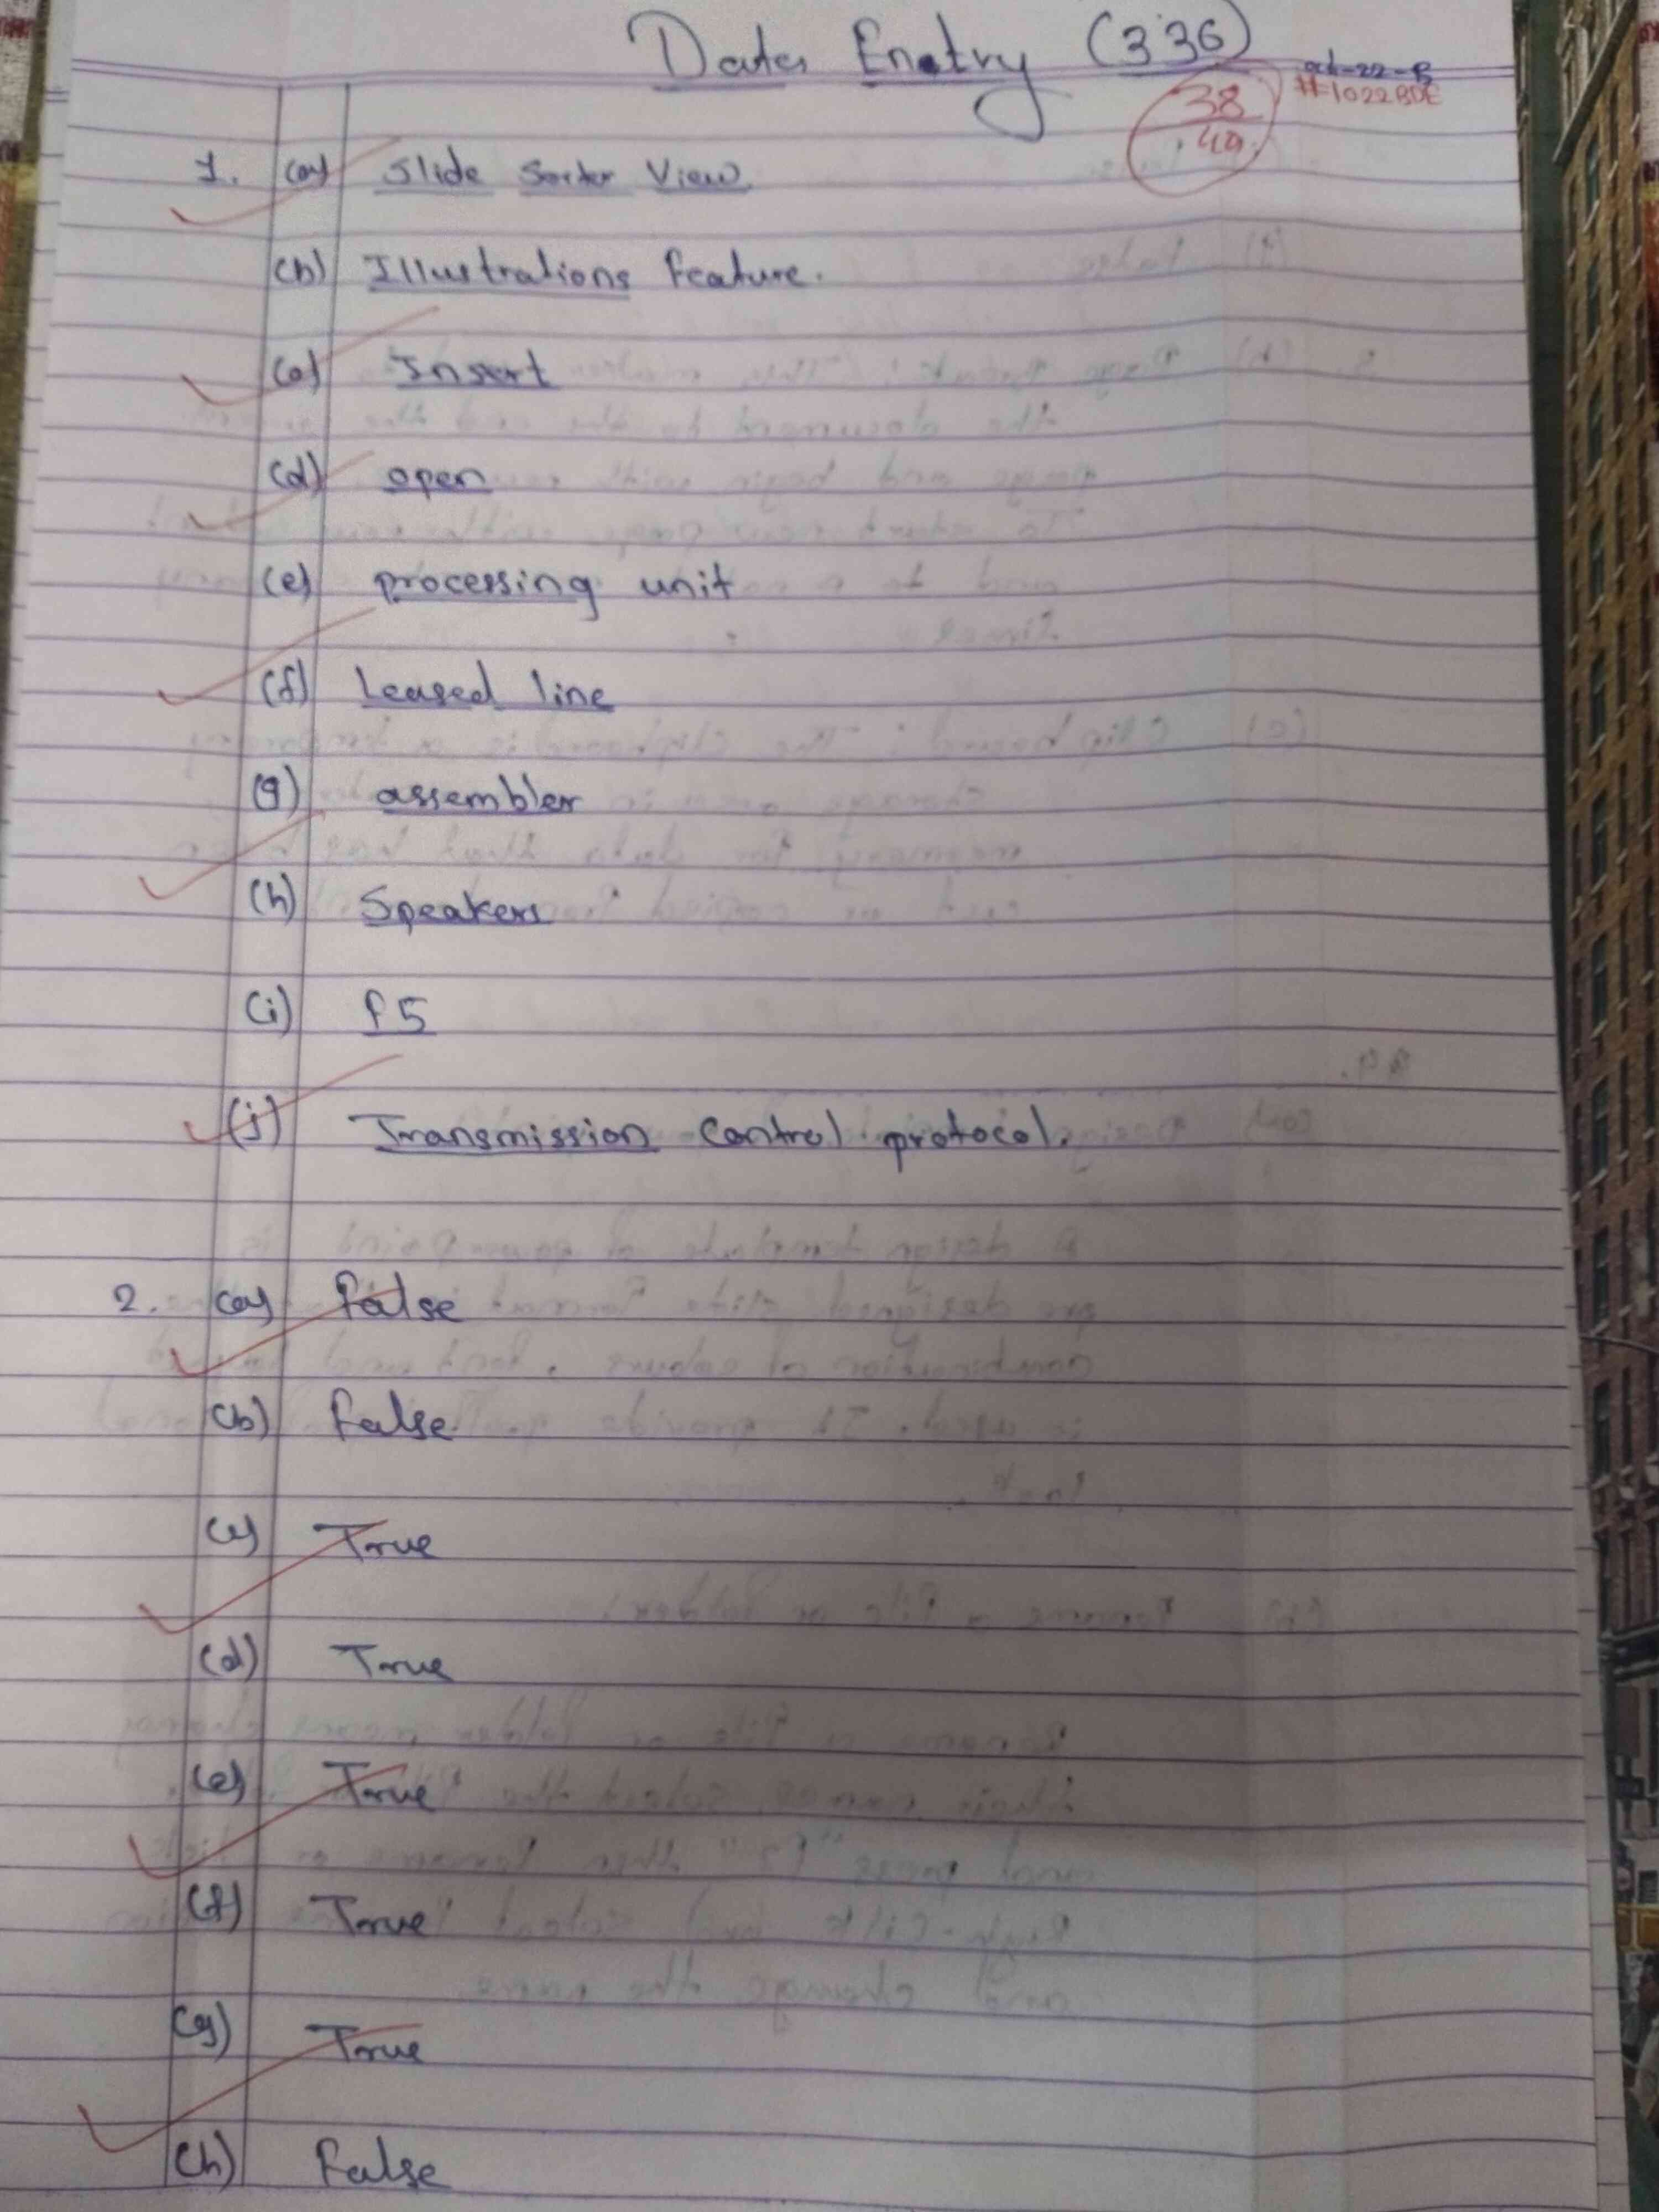 Data Enatry (336)
oct-22-B
#1022BDE
38
40
1. (a) Slide Sorter View
(b) Illustrations feature.
(c) Insert
(d) open
(e) processing unit
(f) Leased line
(g) assembler
(h) Speakers
(i) f5
(j) Transmission Control protocol.
2. (a) false
(b) false
(c) True
(d) True
(e) True
(f) True
(g) True
(h) false